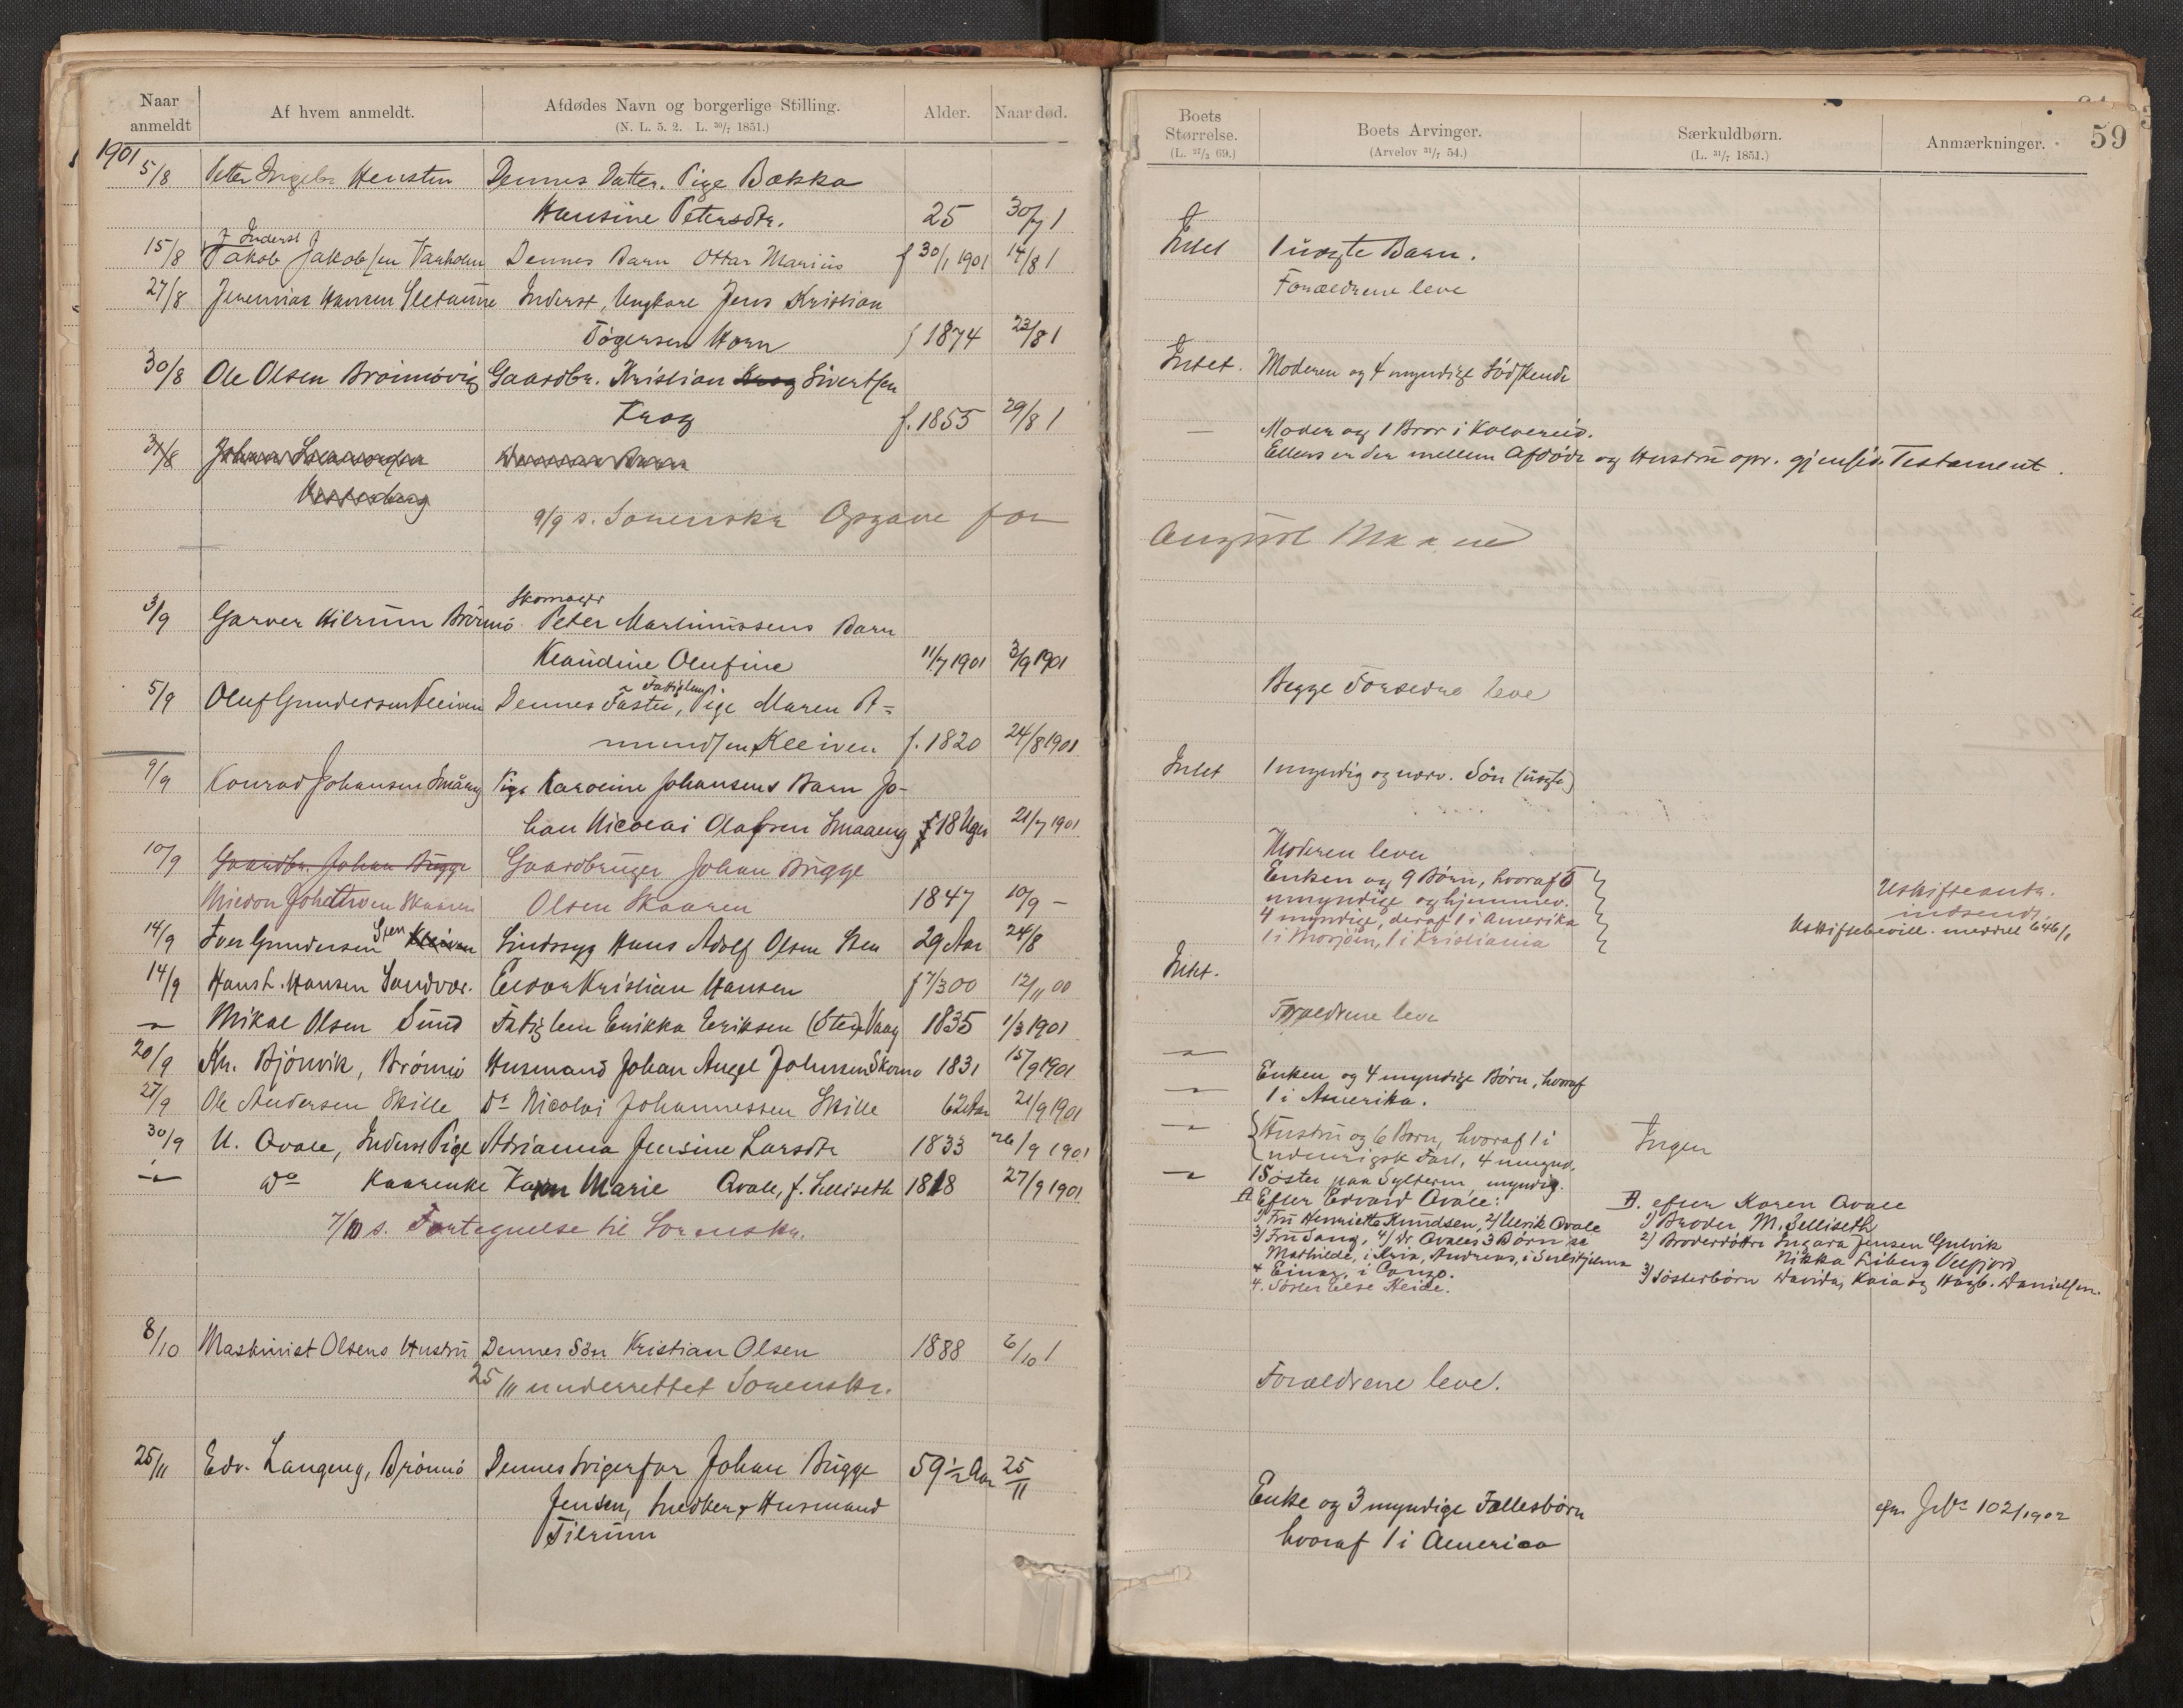 Naar anmeldt
Af hvem anmeldt.
Afdødes Navn og borgerlige Stilling.
(N. L. 5. 2. L. 30/7 1851.)
Alder.
Naar død.
1901
5/8 Peter Hensten Dennes Datter. Pige Bekka
Hansine Petersdtr. 25 30/7 1
Inderst
15/8 Jakob Jakobsen Dennes Barn Ottar Marius f 30/1 1901 14/8 1
27/8 Jeremias Hansen Inderst, Ungkare Jens Kristian
Tøgersen Horn f 1874 23/8 1
30/8 Ole Olsen Gaardbr. Kristian Krog Sivertsen
Krog f. 1855 29/8 1
31/8
9/9 s. Sorenskr Opgave for
3/9 Garver Hilrum Brønnø Skomager Peter Martinussens Barn
Klaudine Olufine 11/7 1901 3/9 1901
5/9 Oluf Gundersen Kleiven Dennes Faster, Fattiglem, Pige Maren A=
mundsen Kleiven f. 1820 24/8 1901
9/9 Konrad Johansen Småeng Pige Karoline Johansens Barn Jo-
han Nicolai Olafsen Smaaeng 18 Uger 21/7 1901
10/9 Gaardbr. Johan Bugge Gaardbruger Johan Bugge
Skaaren Olsen Skaaren 1847 10/9 —
14/9 Iver Gundersen Kleiven Sten Sindssyg Hans Adolf Olsen Sten 29 Aar 24/8
14/9 Hans L. Hansen Sandvær. Eidvar Kristian Hansen f 7/3 00 12/11 00
— Mikal Olsen Sund Fatiglem Erikka Eriksen (Sten) Vaag 1835 1/3 1901
20/9 Kr. Bjørnvik, Brønnø Husmand Johan Angel Johnsen 1831 15/9 1901
27/9 Ole Andersen Skille Do Nicolai Johannessen Skille 62 Aar 21/9 1901
30/9 U. Qvale, Inderst Pige Adrianna Jensine Larsdtr 1833 26/9 1901
— do Kaarenke Karen Marie Qvale, f. Selliseth 1818 27/9 1901
7/10 s. Fortegnelse til Sorenskr.
8/10 Maskinist Olsens Hustru Dennes Søn Kristian Olsen 1888 6/10 1
25/11 underrettet Sorenskr.
25/11 Edv. Langeng, Brønnø Dennes Svigerfar Johan Bugge 59 1/2 Aar 25/11
Jensen, Snedker & Husmand
Tilrum
Boets Størrelse.
(L. 27/3 69.)
Boets Arvinger.
(Arvelov 31/7 54.)
Særkuldbørn.
(L. 31/7 1851.)
Anmærkninger.
59
Intet 1 uægte Barn.
Forældrene leve
Intet. Moderen og 4 myndige Sødskende
— Moder og 1 Bror i Kolvereid.
Ellers er der mellem Afdøde og Hustru opr. gjensid. Testament.
August Maaned
Begge Forældre leve
Intet 1 myndig og nærv. Søn (uægte)
Moderen lever
Enken og 9 Børn, hvoraf 5
umyndige og hjemmev.
4 myndige, deraf 1 i Amerika
1 i Mosjøen, 1 i Kristiania
Uskifteantr.
indsendt.
Uskiftebevill. meddelt 646/1
Intet.
Forældrene leve
—
— Enken og 4 myndige Børn, hvoraf
1 i Amerika.
— Hustru og 6 Børn, hvoraf 1 i
udenrigsk Fart, 4 umynd. Ingen
— 1 Søster paa Sylteren, myndig.
A Efter Edvard Qvale:
1) Fru Henriette Knudsen, 2) Ulrik Qvale
3) Fru Sang, 4) Dr Qvales 3 Børn
Mathilde, i Kria, Andreas, i Sulitjelma
& Einar, i Congo.
4. Søster Else Heide.
B. efter Karen Qvale
1) Broder M. Selliseth
2) Broderdøttre Ingara Jensen Gulvik
Nikka Siberg Velfjord
3) Søsterbørn Davida, Kaia og Hagb. Danielsen.
Forældrene leve.
Enke og 3 myndige Fællesbørn
hvoraf 1 i America
JNo 102/1902